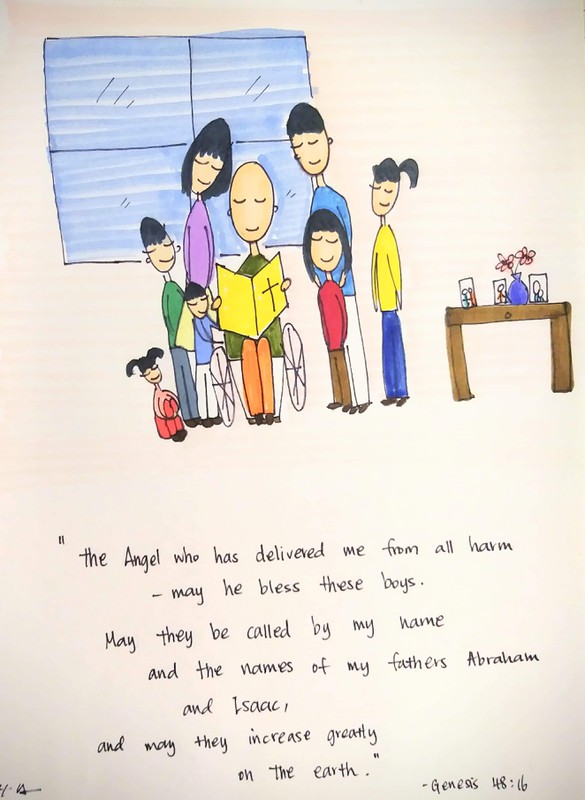 "the Angel who has delivered me from all harm
- may he bless these boys.
May they be called by my name
and the names of my fathers Abraham
and Isaac,
and may they increase greatly
on the earth."
-Genesis 48:16